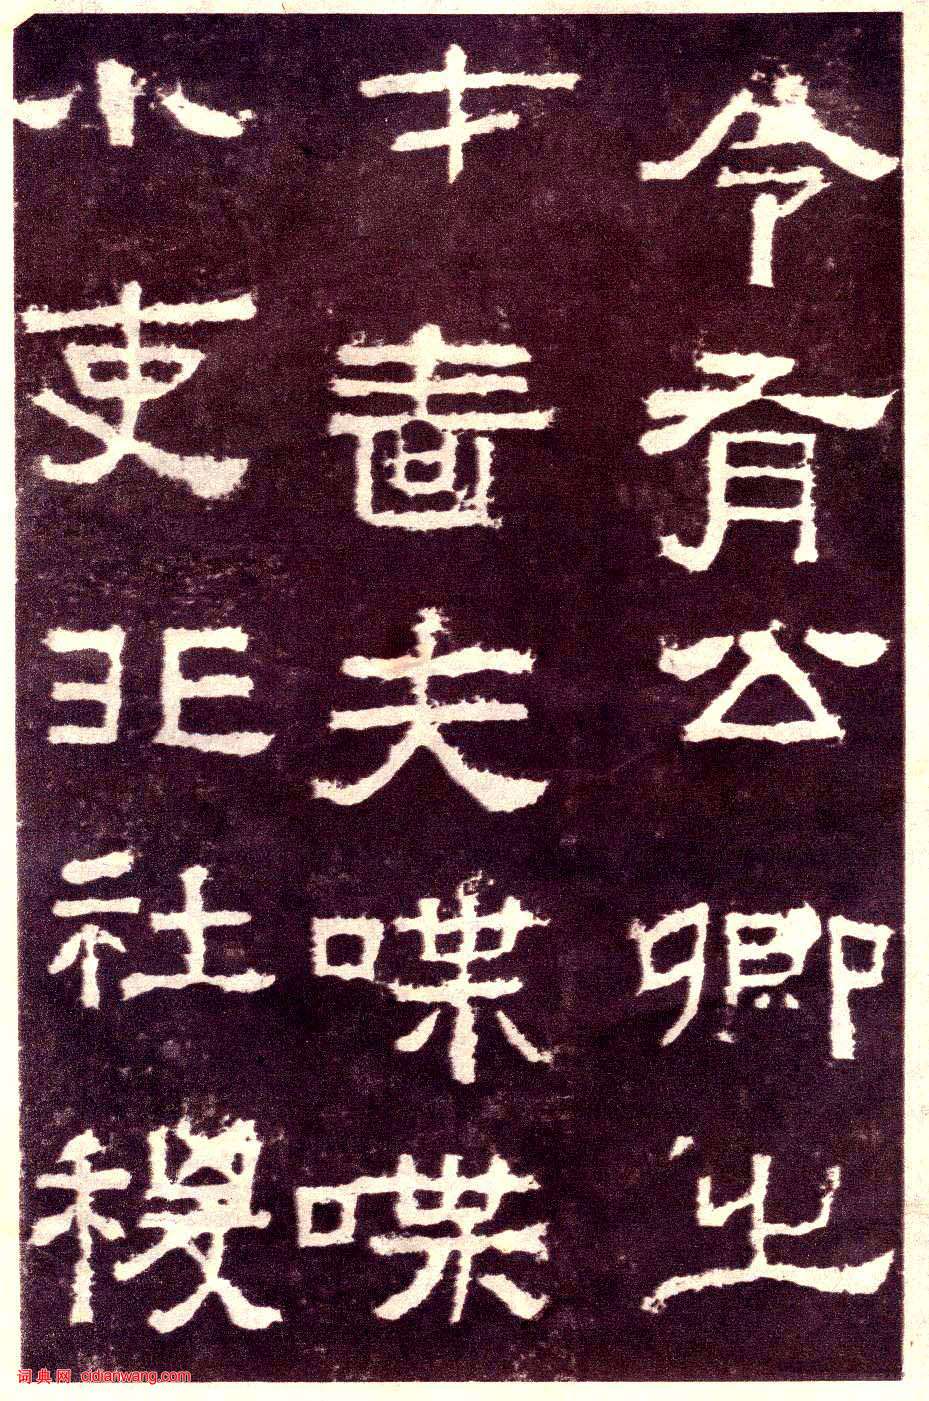 令有公卿之
才嗇夫喋喋
小吏非社稷
词典网 cidianwang.com